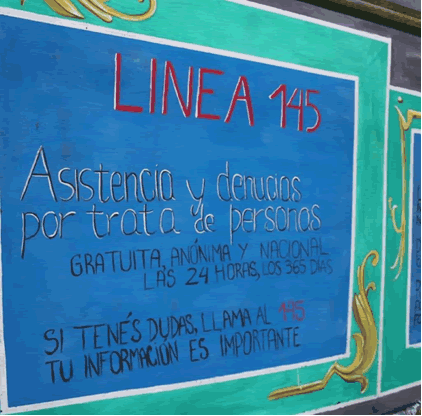 LINEA 145
Asistencia y denucias
por trata de personas
GRATUITA, ANÓNIMA Y NACIONAL
LAS 24 HORAS, LOS 365 DIAS
SI TENÉS DUDAS, LLAMA AL 145
TU INFORMACIÓN ES IMPORTANTE